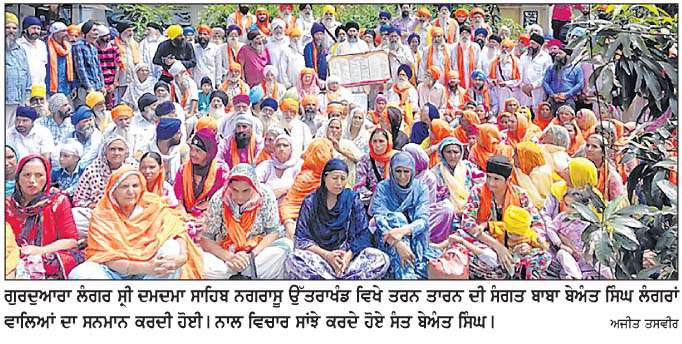 ਗੁਰਦੁਆਰਾ ਲੰਗਰ ਸ਼੍ਰੀ ਦਮਦਮਾ ਸਾਹਿਬ ਨਗਰਾਸੂ ਉੱਤਰਾਖੰਡ ਵਿਖੇ ਤਰਨ ਤਾਰਨ ਦੀ ਸੰਗਤ ਬਾਬਾ ਬੇਅੰਤ ਸਿੰਘ ਲੰਗਰਾਂ
ਵਾਲਿਆਂ ਦਾ ਸਨਮਾਨ ਕਰਦੀ ਹੋਈ। ਨਾਲ ਵਿਚਾਰ ਸਾਂਝੇ ਕਰਦੇ ਹੋਏ ਸੰਤ ਬੇਅੰਤ ਸਿੰਘ। ਅਜੀਤ ਤਸਵੀਰ